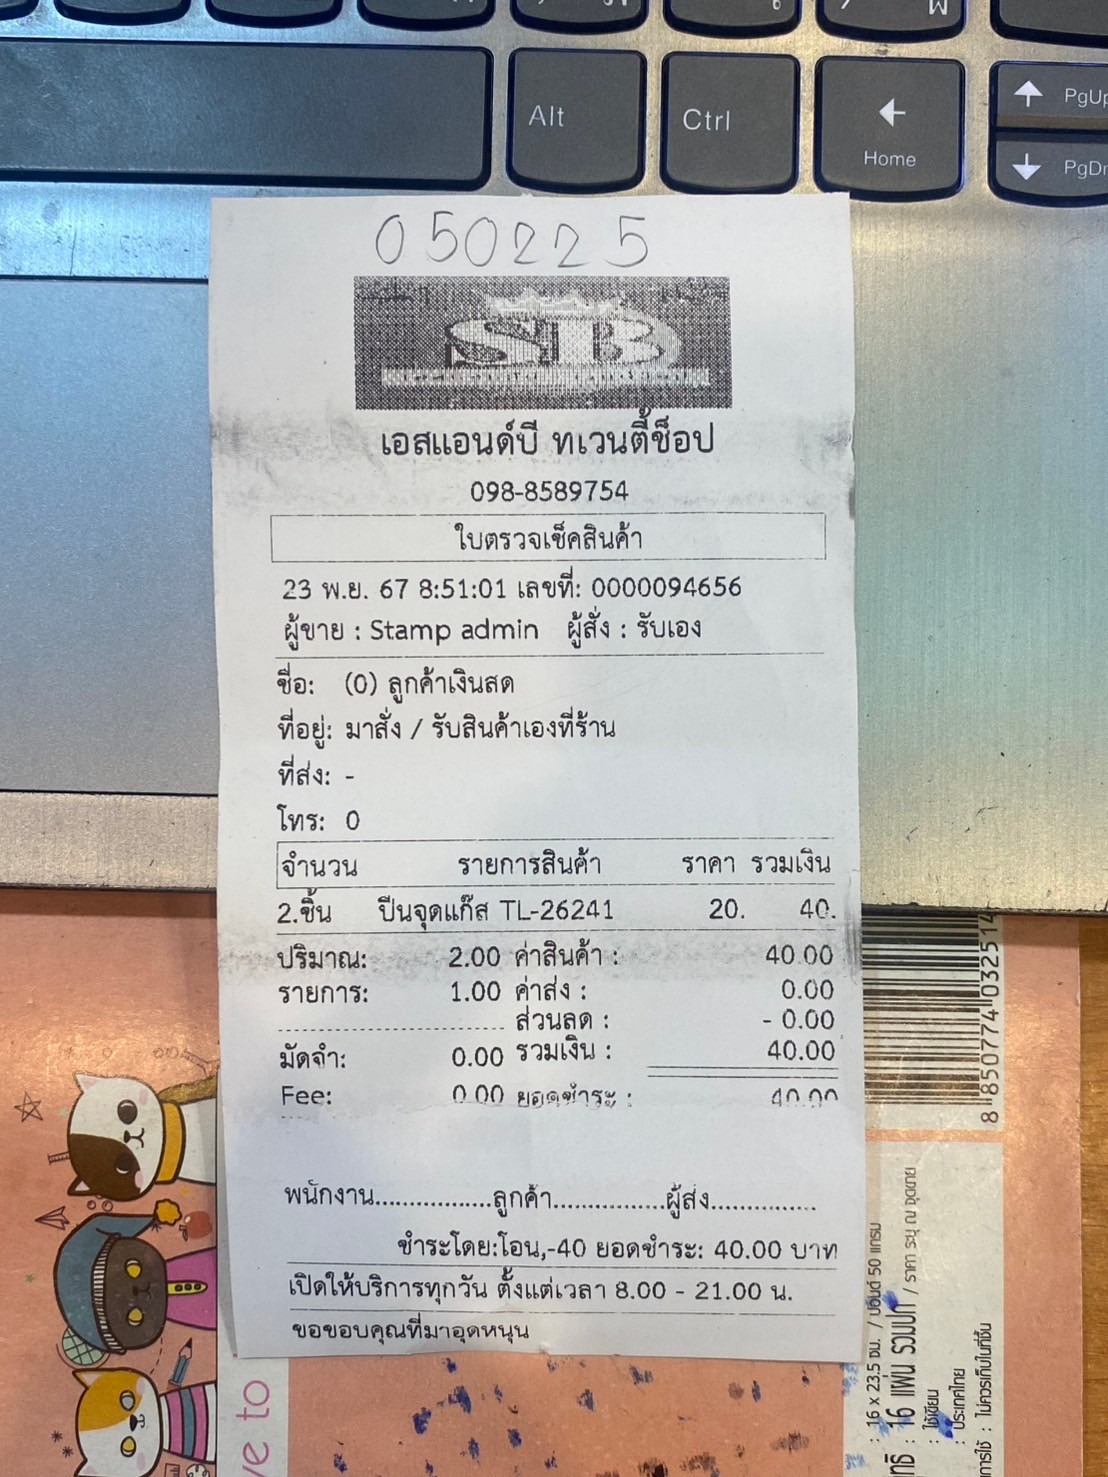 Alt
Ctrl
Home
PgUp
PgDn
050225
SB
เอสแอนด์บี ทเวนตี้ช็อป
098-8589754
ใบตรวจเช็คสินค้า
23 พ.ย. 67 8:51:01 เลขที่: 0000094656
ผู้ขาย : Stamp admin ผู้สั่ง : รับเอง
ชื่อ: (0) ลูกค้าเงินสด
ที่อยู่: มาสั่ง / รับสินค้าเองที่ร้าน
ที่ส่ง: -
โทร: 0
จำนวน รายการสินค้า ราคา รวมเงิน
2.ชิ้น ปืนจุดแก๊ส TL-26241 20. 40.
ปริมาณ: 2.00 ค่าสินค้า : 40.00
รายการ: 1.00 ค่าส่ง : 0.00
ส่วนลด : - 0.00
มัดจำ: 0.00 รวมเงิน : 40.00
Fee: 0.00 ยอดชำระ : 40.00
พนักงาน................ลูกค้า................ผู้ส่ง...............
ชำระโดย:โอน,-40 ยอดชำระ: 40.00 บาท
เปิดให้บริการทุกวัน ตั้งแต่เวลา 8.00 - 21.00 น.
ขอขอบคุณที่มาอุดหนุน
ve to
: 16 x 23.5 ซม. / ปอนด์ 50 แกรม
: 16 แผ่น รวมปก / ราคา ระบุ ณ จุดขาย
: ใช้เขียน
: ประเทศไทย
: ไม่ควรเก็บในที่ชื้น